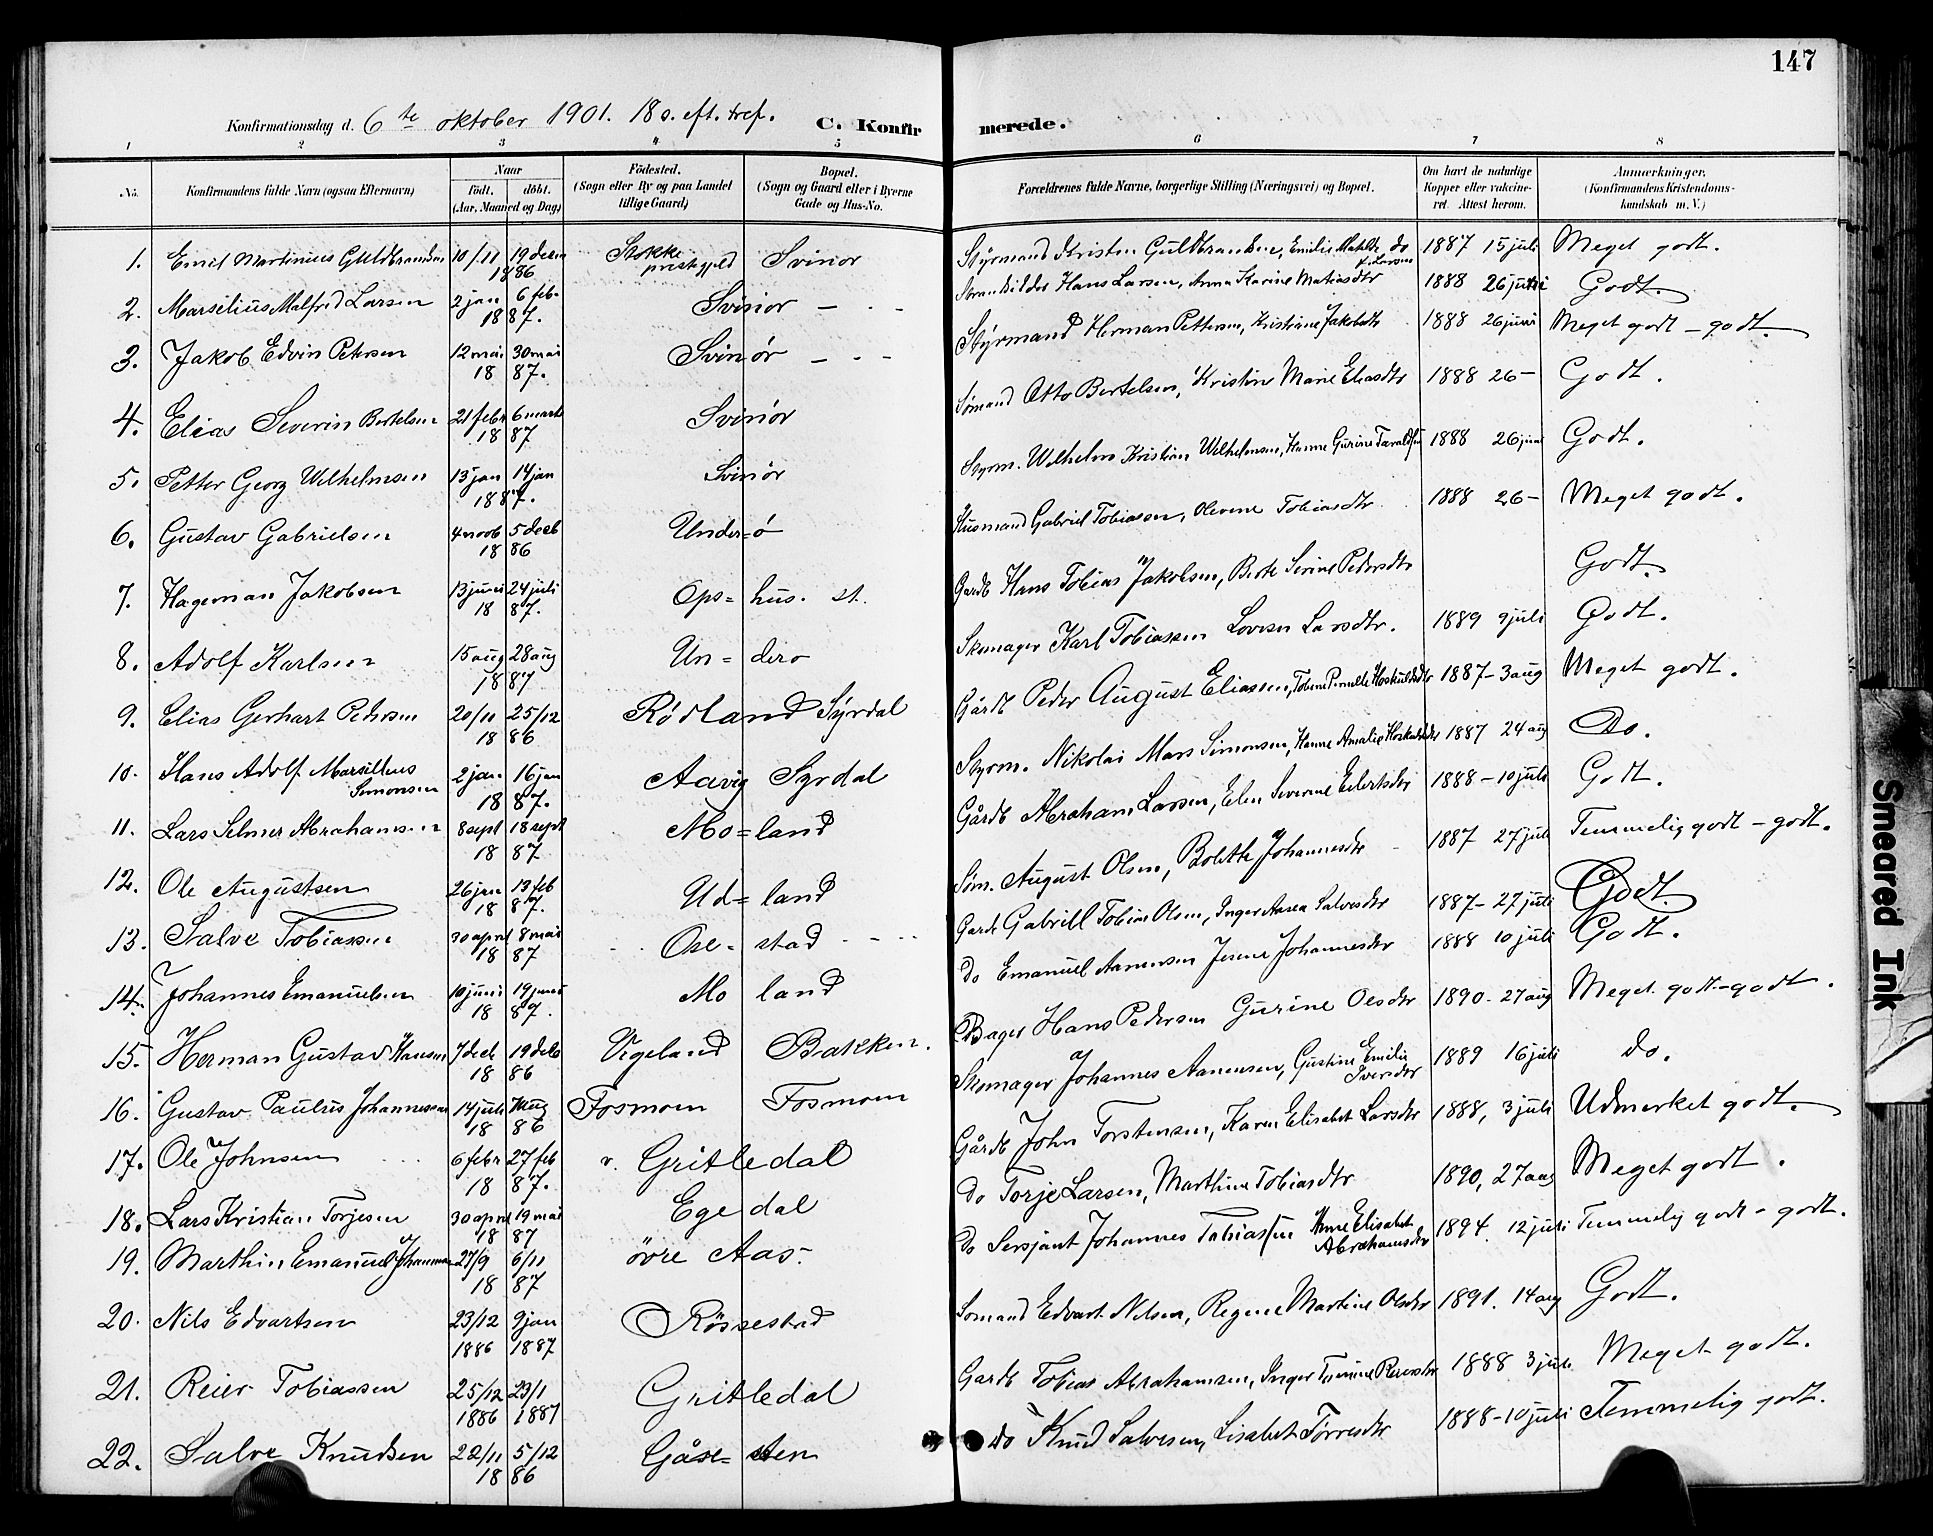 147
Konfirmationsdag d. 6te oktober 1901. 18 s. eft. tref. C. Konfirmerede.
1 2 3 4 5 6 7 8
No. Konfirmandens fulde Navn (ogsaa Efternavn) Naar Födt. döbt. (Aar, Maaned og Dag) Födested. (Sogn eller By og paa Landet tillige Gaard) Bopæl. (Sogn og Gaard eller i Byerne Gade og Hus-No. Forældrenes fulde Navne, borgerlige Stilling (Næringsvei) og Bopæl. Om havt de naturlige Kopper eller vakcineret. Attest herom. Anmærkninger, (Konfirmandens Kristendomskundskab m. V.)
1. Emil Martinius Guldbrandsen 10/11 19 decm 1886 Stokke prestegjeld Svinor Styrmand Kristen Guldbrandsen, Emilie Matilde do 1887 15 juli Meget godt.
2. Marselius Malfred Larsen 2 jan 6 feb. 1887. Svinor — - - Hans Larsen, Anna Karine Matiasdtr 1888 26 juni Godt.
3. Jakob Edvin Petersen 12 mai 30 mai 1887. Svinör — - - Styrmand Herman Pettersen, Kristiane Jakobsdtr 1888 26 juni Meget godt - godt.
4. Elias Severin Bertelsen 21 febr 6 marts 1887 Svinör Sömand Otto Bertelsen, Kristine Marie Eliasdtr 1888 26 — Godt.
5. Petter Georg Wilhelmsen 13 jan 14 jan 1887. Svinör Styrm. Wilhelm Kristian Wilhelmsen, Hanne Gurine 1888 26 juni Godt.
6. Gustav Gabrielsen 4 novb 5 decb 1886 Under=ö Husmand Gabriel Tobiassen, Olevine Tobiasdtr 1888 26 — Meget godt.
7. Hageman Jakobsen 13 juni 24 juli 1887. Ops= hus. st. Gardb Hans Tobias Jakobsen, Berte Serine Pedersdtr Godt.
8. Adolf Karlsen 15 aug 28 aug 1887 Un= dero Skomager Karl Tobiassen Lovise Larsdtr. 1889 9 juli Godt.
9. Elias Gerhart Pedersen 20/11 25/12 1886 Rödland Syrdal Gårdb Peder August Eliassen, Tobine Pernille Hoskuldsdtr 1887 - 3 aug Meget godt.
10. Hans Adolf Marsillius Simonsen 2 jan 16 jan 1887. Aavig Syrdal Styrm. Nikolai Mars Simonsen, Hanne Amalie Hoskuldsdtr 1887 24 aug Do.
11. Lars Selmer Abrahamsen 8 sept 18 sept 1887 Mo= land Gårdb Abraham Larsen, Elen Severine Eilertsdtr 1888 - 10 juli Godt.
12. Ole Augustsen 26 jan 13 feb 1887. Ud= land Söm. August Olsen, Bolette Johannesdtr 1887 27 juli Temmelig godt - godt.
13. Salve Tobiassen 30 april 8 mai 1887 Ose= stad Gardb Gabriell Tobias Olsen, Inger Aasea Salvesdtr 1887 - 27 juli Godt.
14. Johannes Emanuelsen 10 juni 19 juni 1887. Mo land do Emanuel Aanensen Jesine Johannesdtr 1888 10 juli Godt.
15. Herman Gustav Hansen 7 decb 19 decb 1886 Vigeland Bakken. Bager Hans Pedersen Gurine Olsdtr 1890 - 27 aug Meget godt - godt.
16. Gustav Paulus Johannessen 14 juli aug 1886 Fosmoen Fosmoen Skomager Johannes Aanensen, Gustine Emilie Iversdtr 1889 16 juli do.
17. Ole Johnsen 6 febr 27 feb 1887. v. Gritledal Gårdb John Torstensen, Karen Elisabet Larsdtr 1888, 3 juli Udmerket godt.
18. Lars Kristian Torjesen 30 april 19 mai 1887 Ege dal do Torje Larsen, Marthine Tobiasdtr 1890, 27 aug Meget godt.
19. Marthin Emanuel Johannessen 27/9 6/11 1887 övre Aas. do Sersjant Johannes Tobiassen Anne Elisabet Abrahamsdtr 1894. 12 juli Temmelig godt - godt.
20. Nils Edvartsen 23/12 1886 9 jan 1887 Rössestad Somand Edvart Nilsen, Regine Martine Olsdtr 1891. 14 aug Godt.
21. Reier Tobiassen 25/12 1886 23/1 1887 Gritledal Gardb Tobias Abrahamsen, Inger Tomine Reiersdtr 1888 3 juli Meget godt.
22. Salve Knudsen 22/11 5/12 1886 Gåse= sten do Knud Salvesen, Lisabet Törresdtr 1888 - 10 juli Temmelig godt.
Smeared Ink